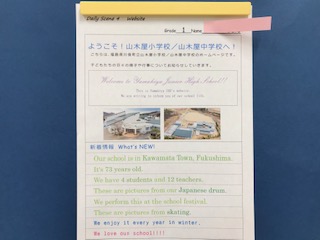 Daily Scene 4  Website
Grade 1 Name
ようこそ！山木屋小学校／山木屋中学校へ！
こちらは、福島県川俣町立山木屋小学校／山木屋中学校のホームページです。
子どもたちの日々の様子や行事についてお知らせしていきます。
Welcome to Yamakiya Junior High School!!
This is Yamakiya JHS's website.
We are willing to inform you of our school life.
新着情報 What's NEW!
Our school is in Kawamata Town, Fukushima.
It's 73 years old.
We have 4 students and 12 teachers.
These are pictures from our Japanese drum.
We perform this at the school festival.
These are pictures from skating.
We enjoy it every year in winter.
We love our school!!!!